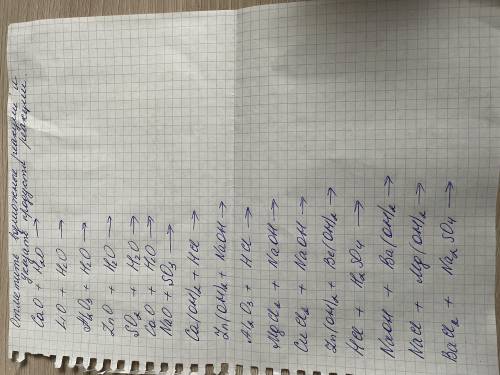 Отметить возможные реакции и
указать продукты реакции
CaO + H2O →
LiO + H2O →
Al2O3 + H2O →
ZnO + H2O →
SO2 + H2O →
CaO + H2O →
NaO + SO3 →
Ca(OH)2 + HCl →
Zn(OH)2 + NaOH →
Al2O3 + HCl →
MgCl2 + NaOH →
CuCl2 + NaOH →
Zn(OH)2 + Be(OH)2 →
HCl + H2SO4 →
NaOH + Ba(OH)2 →
NaCl + Mg(OH)2 →
BaCl2 + Na2SO4 →